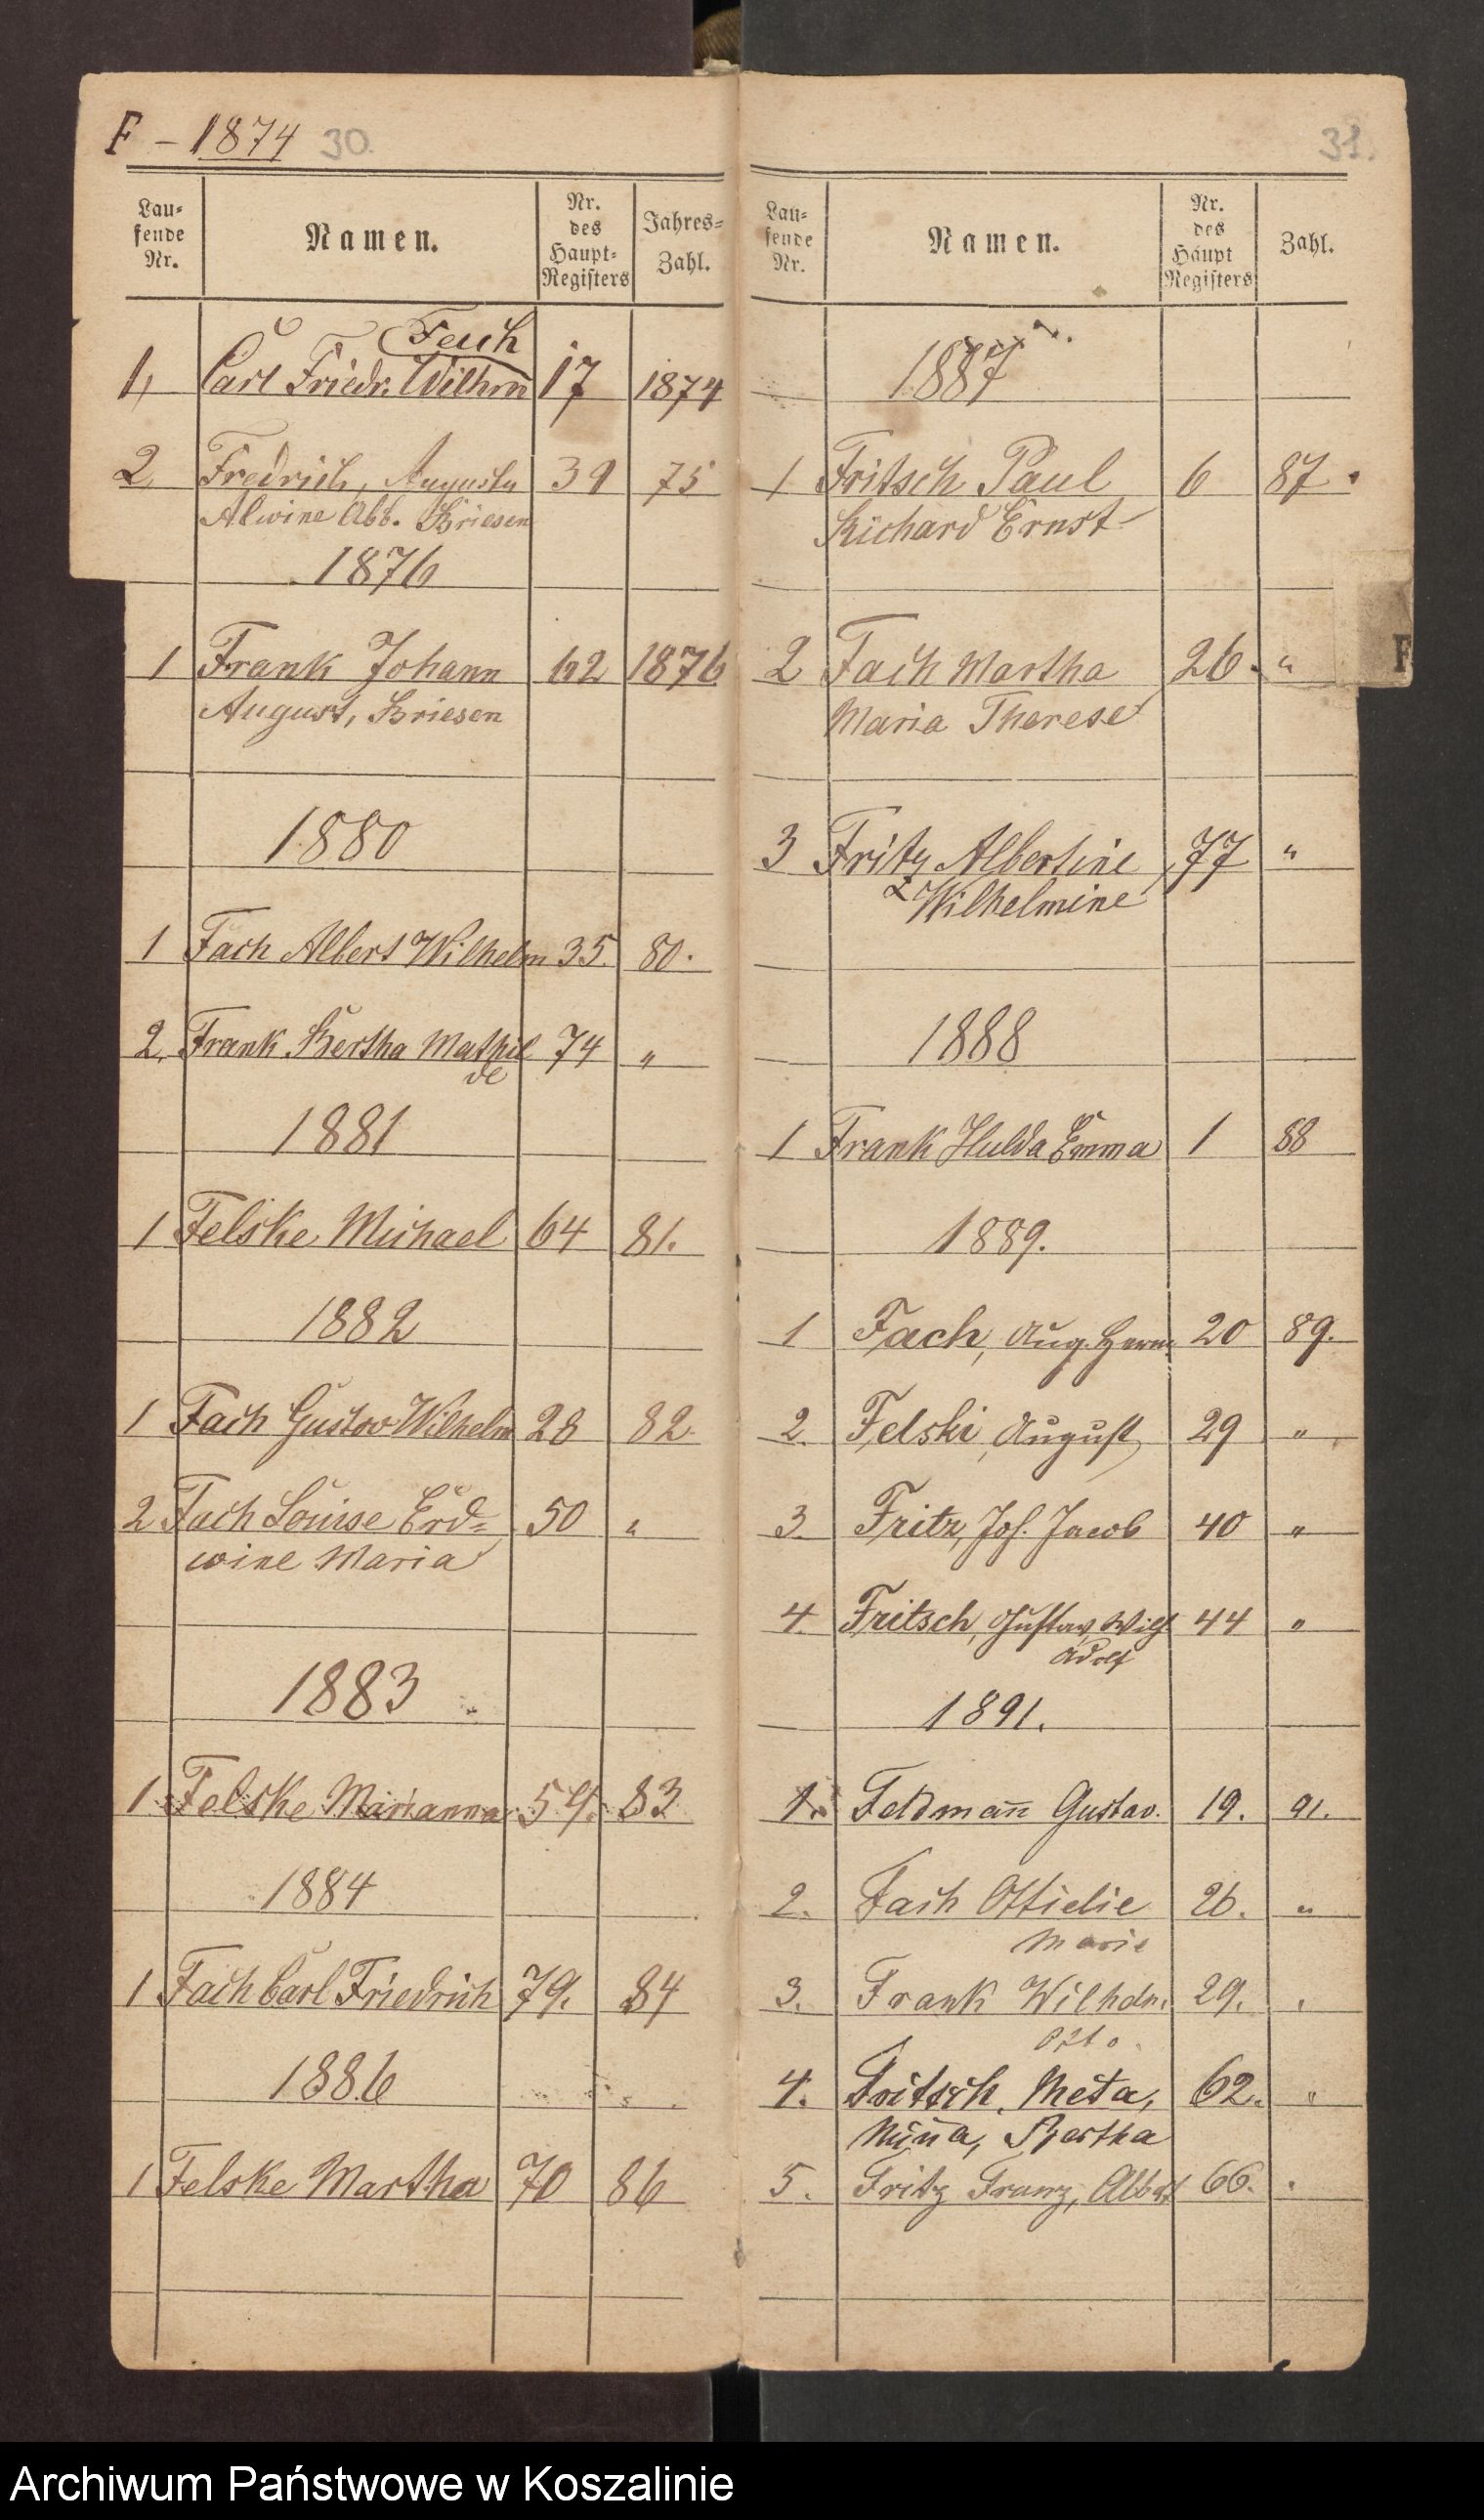 F - 1874 30.
Lau-
fende
Nr.
Namen.
Nr.
des
Haupt-
Registers
Jahres-
Zahl.
Fach
1, Carl Friedr. Wilhm 17 1874
2 Fredrich, Auguste 39 75
Alwine Abb. Briesen
1876
1 Frank Johann 62 1876
August, Briesen
1880
1 Fach Albert Wilhelm 35. 80.
2. Frank Bertha Mathil 74 "
de
1881
1 Felske Michael 64 81.
1882
1 Fach Gustav Wilhelm 28 82.
2 Fach Louise Erd= 50 "
wine Maria
1883
1 Felske Marianna 54. 83
1884
1 Fach Carl Friedrich 79. 84
1886
1 Felske Martha 70 86
31.
Lau-
fende
Nr.
Namen.
Nr.
des
Haupt
Registers
Zahl.
1887
1 Fritsch Paul 6 87.
Richard Ernst
2 Fach Martha 26. "
Maria Therese
F
3 Fritz Albertine 77 "
Wilhelmine
1888
1 Frank Hulda Emma 1 88
1889.
1 Fach, Aug. Herm. 20 89.
2. Felski, August 29 "
3. Fritz, Joh. Jacob 40 "
4. Fritsch, Gustav, Wilh. 44 "
Adolf
1891.
1. Feldman̄ Gustav. 19. 91.
2. Fach Ottielie 26. "
Marie
3. Frank Wilhelm 29. "
Otto.
4. Fritsch, Meta, 62. "
Min̄a, Bertha
5. Fritz Franz, Albert 66. "
Archiwum Państwowe w Koszalinie